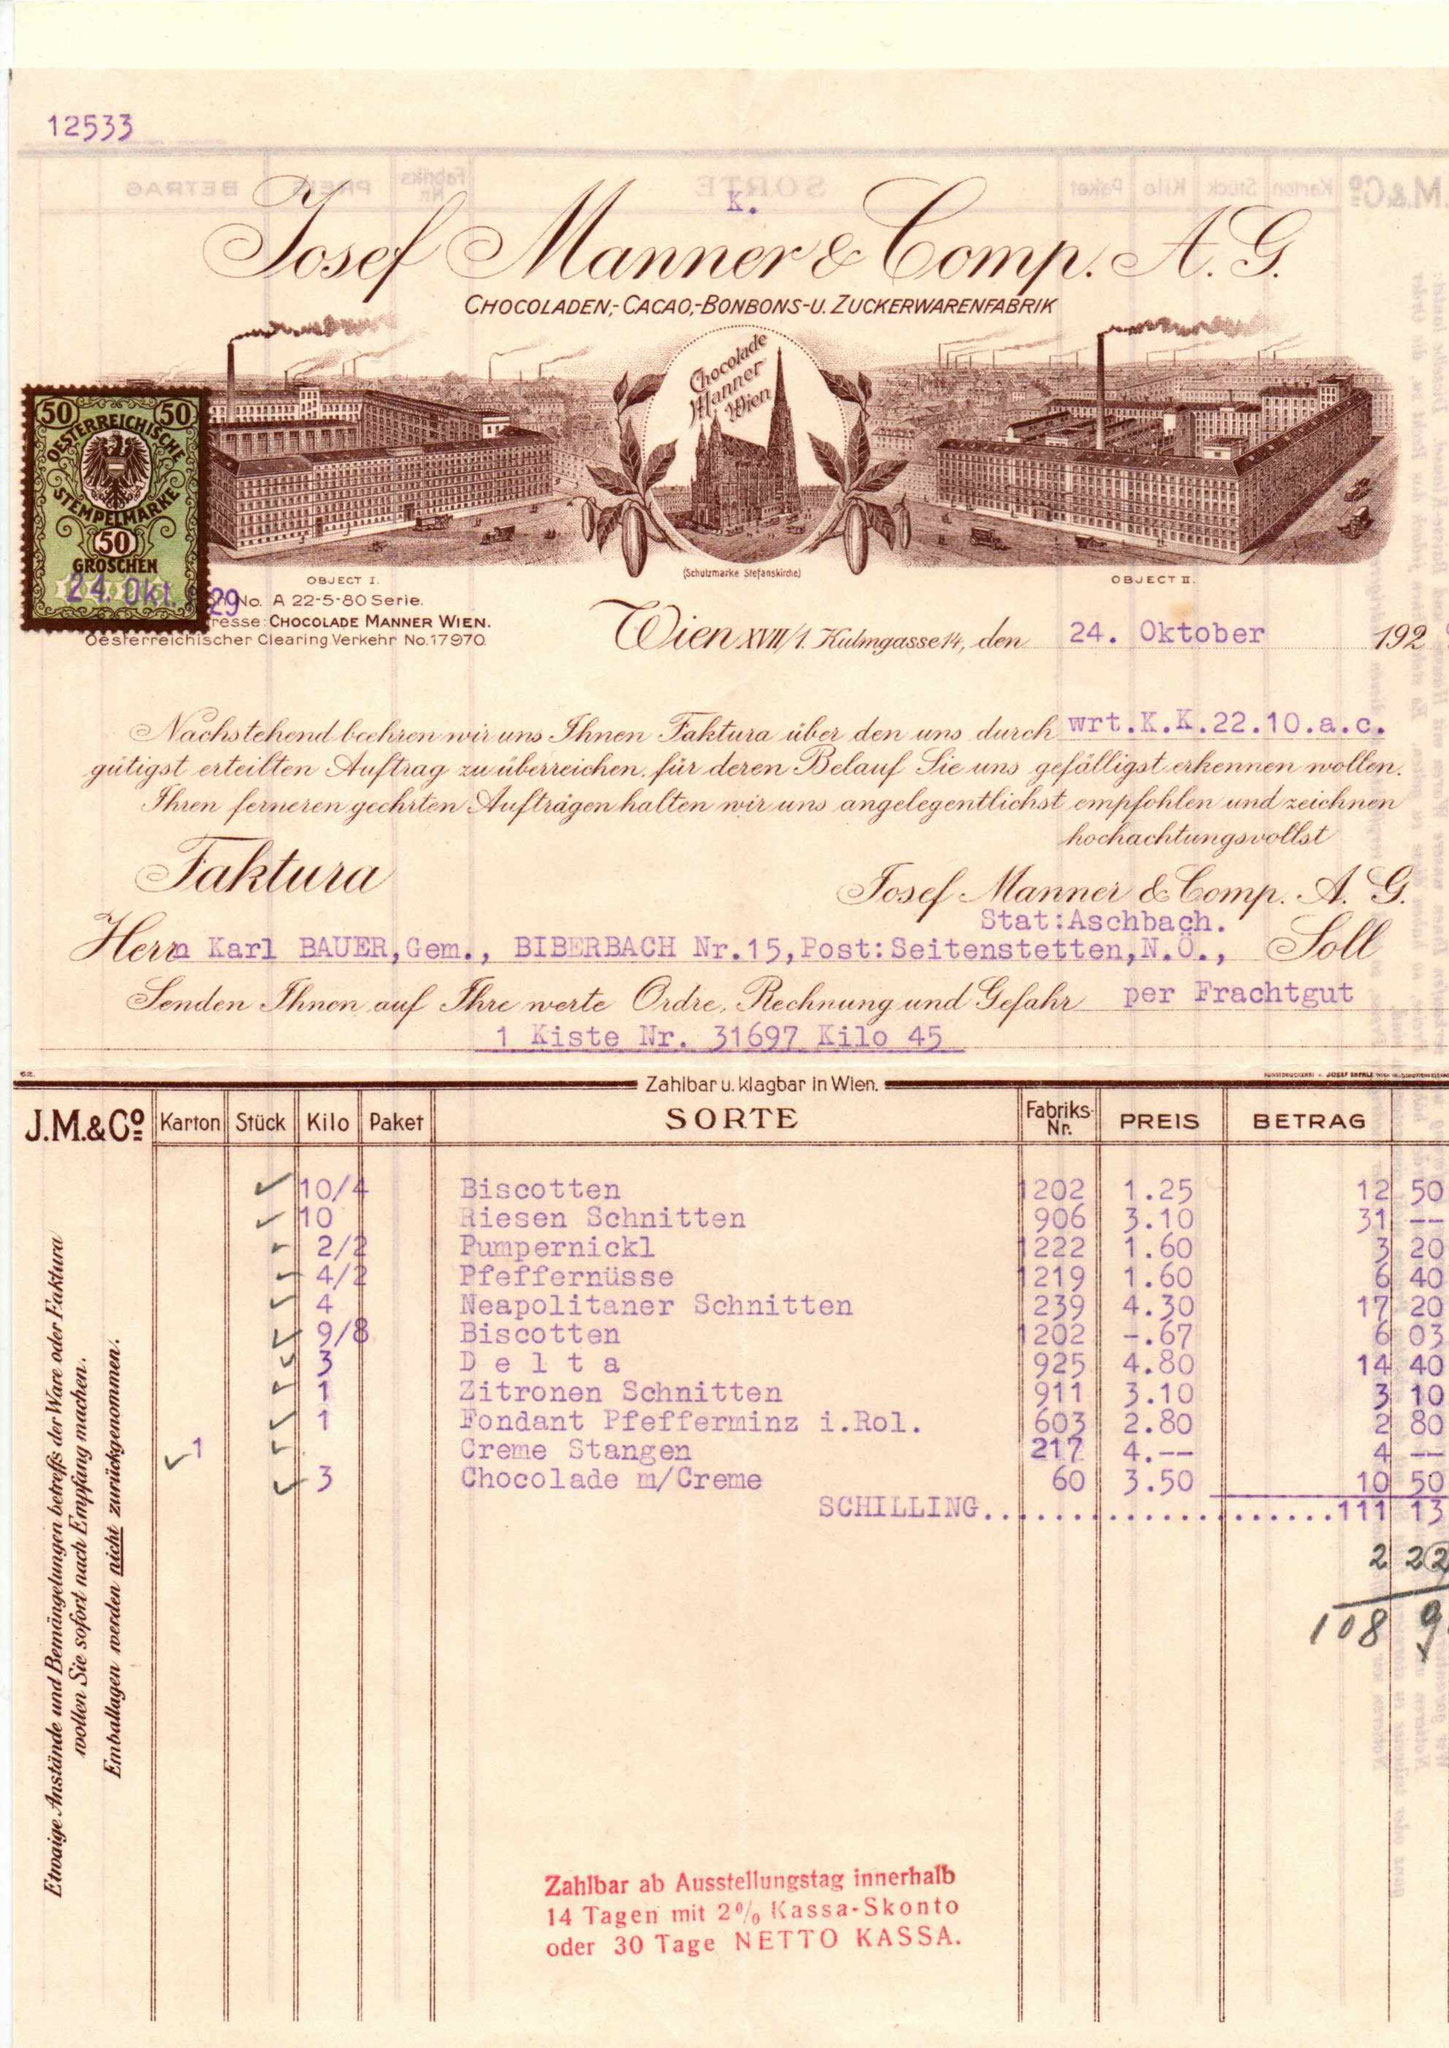 12533
K.
Josef Manner & Comp. A. G.
CHOCOLADEN,- CACAO,-BONBONS-U. ZUCKERWARENFABRIK
Chocolade
Manner
Wien
50 50
OESTERREICHISCHE
STEMPELMARKE
50
GROSCHEN
24. Okt. 29
(Schutzmarke Stefanskirche)
OBJECT I.
OBJECT II.
No. A 22-5-80 Serie.
resse: CHOCOLADE MANNER WIEN.
Oesterreichischer Clearing Verkehr No. 17970.
Wien XVII/1. Kulmgasse 14, den 24. Oktober 192
Nachstehend beehren wir uns Ihnen Faktura über den uns durch wrt.K.K.22.10.a.c.
gütigst erteilten Auftrag zu überreichen, für deren Belauf Sie uns gefälligst erkennen wollen.
Ihren ferneren geehrten Aufträgen halten wir uns angelegentlichst empfohlen und zeichnen
hochachtungsvollst
Faktura
Josef Manner & Comp. A. G.
Stat:Aschbach.
Herrn Karl BAUER,Gem., BIBERBACH Nr.15,Post:Seitenstetten,N.Ö., Soll
Senden Ihnen auf Ihre werte Ordre, Rechnung und Gefahr per Frachtgut
1 Kiste Nr. 31697 Kilo 45
62.
Zahlbar u. klagbar in Wien.
J.M.&Co Karton Stück Kilo Paket SORTE Fabriks-Nr. PREIS BETRAG
10/4 Biscotten 1202 1.25 12 50
10 Riesen Schnitten 906 3.10 31 --
2/2 Pumpernickl 1222 1.60 3 20
4/2 Pfeffernüsse 1219 1.60 6 40
4 Neapolitaner Schnitten 239 4.30 17 20
9/8 Biscotten 1202 -.67 6 03
3 D e l t a 925 4.80 14 40
1 Zitronen Schnitten 911 3.10 3 10
1 Fondant Pfefferminz i.Rol. 603 2.80 2 80
1 Creme Stangen 217 4.-- 4 --
3 Chocolade m/Creme 60 3.50 10 50
SCHILLING......................111 13
2 22
108 9
Etwaige Anstände und Bemängelungen betreffs der Ware oder Faktura
wollen Sie sofort nach Empfang machen.
Emballagen werden nicht zurückgenommen.
Zahlbar ab Ausstellungstag innerhalb
14 Tagen mit 2% Kassa-Skonto
oder 30 Tage NETTO KASSA.